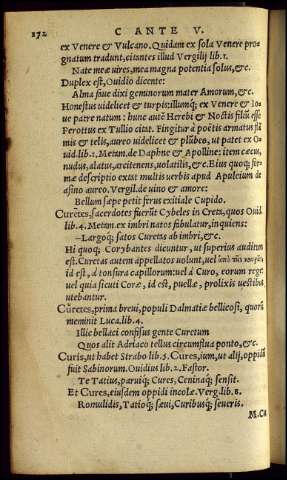 172 CANTE V.
ex Venere & Vulcano. Quidam ex sola Venere pro-
gnatum tradunt, citantes illud Vergilij lib. 1.
Nate meæ uires, mea magna potentia solus, &c.
Duplex est, Ouidio dicente:
Alma faue dixi geminorum mater Amorum, &c.
Honestus uidelicet & turpis: illumq; ex Venere & Io-
ue patre natum: hunc autē Herebi & Noctis filiū esse
Perottus ex Tullio citat. Fingitur à poëtis armatus fl
mis & telis, aureo uidelicet & plūbeo, ut patet ex Oui
uid. lib. 1. Metam. de Daphne & Apolline: item cæcus,
nudus, alatus, arcitenens, uolatilis, &c. Eius quoq; for-
mæ descriptio extat multis uerbis apud Apuleium de
asino aureo. Vergil. de uino & amore:
Bellum sæpe petit ferus exitiale Cupido.
Curetes, sacerdotes fuerūt Cybeles in Creta, quos Ouid
lib. 4. Metam. ex imbri natos fabulatur, inquiens:
—Largoq; satos Curetas ab imbri, &c.
Hi quoq; Corybantes dicuntur, ut superius auditum
est. Curetas autem appellatos uolunt, uel
id est, à tonsura capillorum: uel à Curo, eorum rege
uel quia sicuti Coræ, id est, puellæ, prolixis uestibus
utebantur.
Cūretes, prima breui, populi Dalmatiæ bellicosi, quorū
meminit Luca. lib. 4.
Illic bellaci confisus gente Curetum
Quos alit Adriaco tellus circumflua ponto, &c.
Curis, ut habet Strabo lib. 5. Cures, ium, ut alij, oppidū
fuit Sabinorum. Ouidius lib. 2. Fastor.
Te Tatius, paruiq; Cures, Ceninaq; sensit.
Et Cures, eiusdem oppidi incolæ. Verg. lib. 8.
Romulidis, Tatioq; saui, Curibusq; seueris.